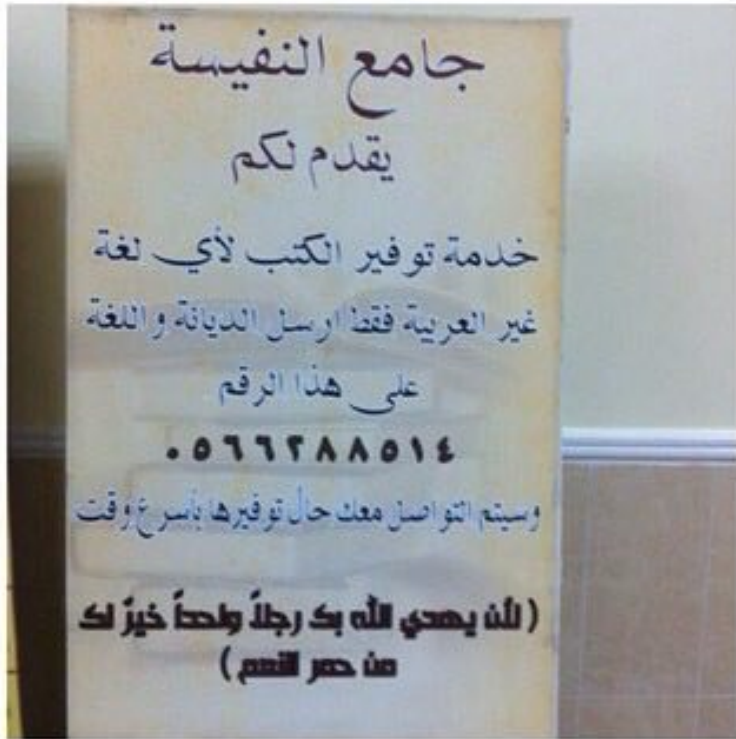 جامع النفيسة
يقدم لكم
خدمة توفير الكتب لأي لغة
غير العربية فقط ارسل الديانة و اللغة
على هذا الرقم
٠٥٦٦٢٨٨٥١٤
وسيتم التواصل معك حال توفيرها بأسرع وقت
( لئن يهدي الله بك رجلاً واحداً خيرٌ لك
من حمر النعم )